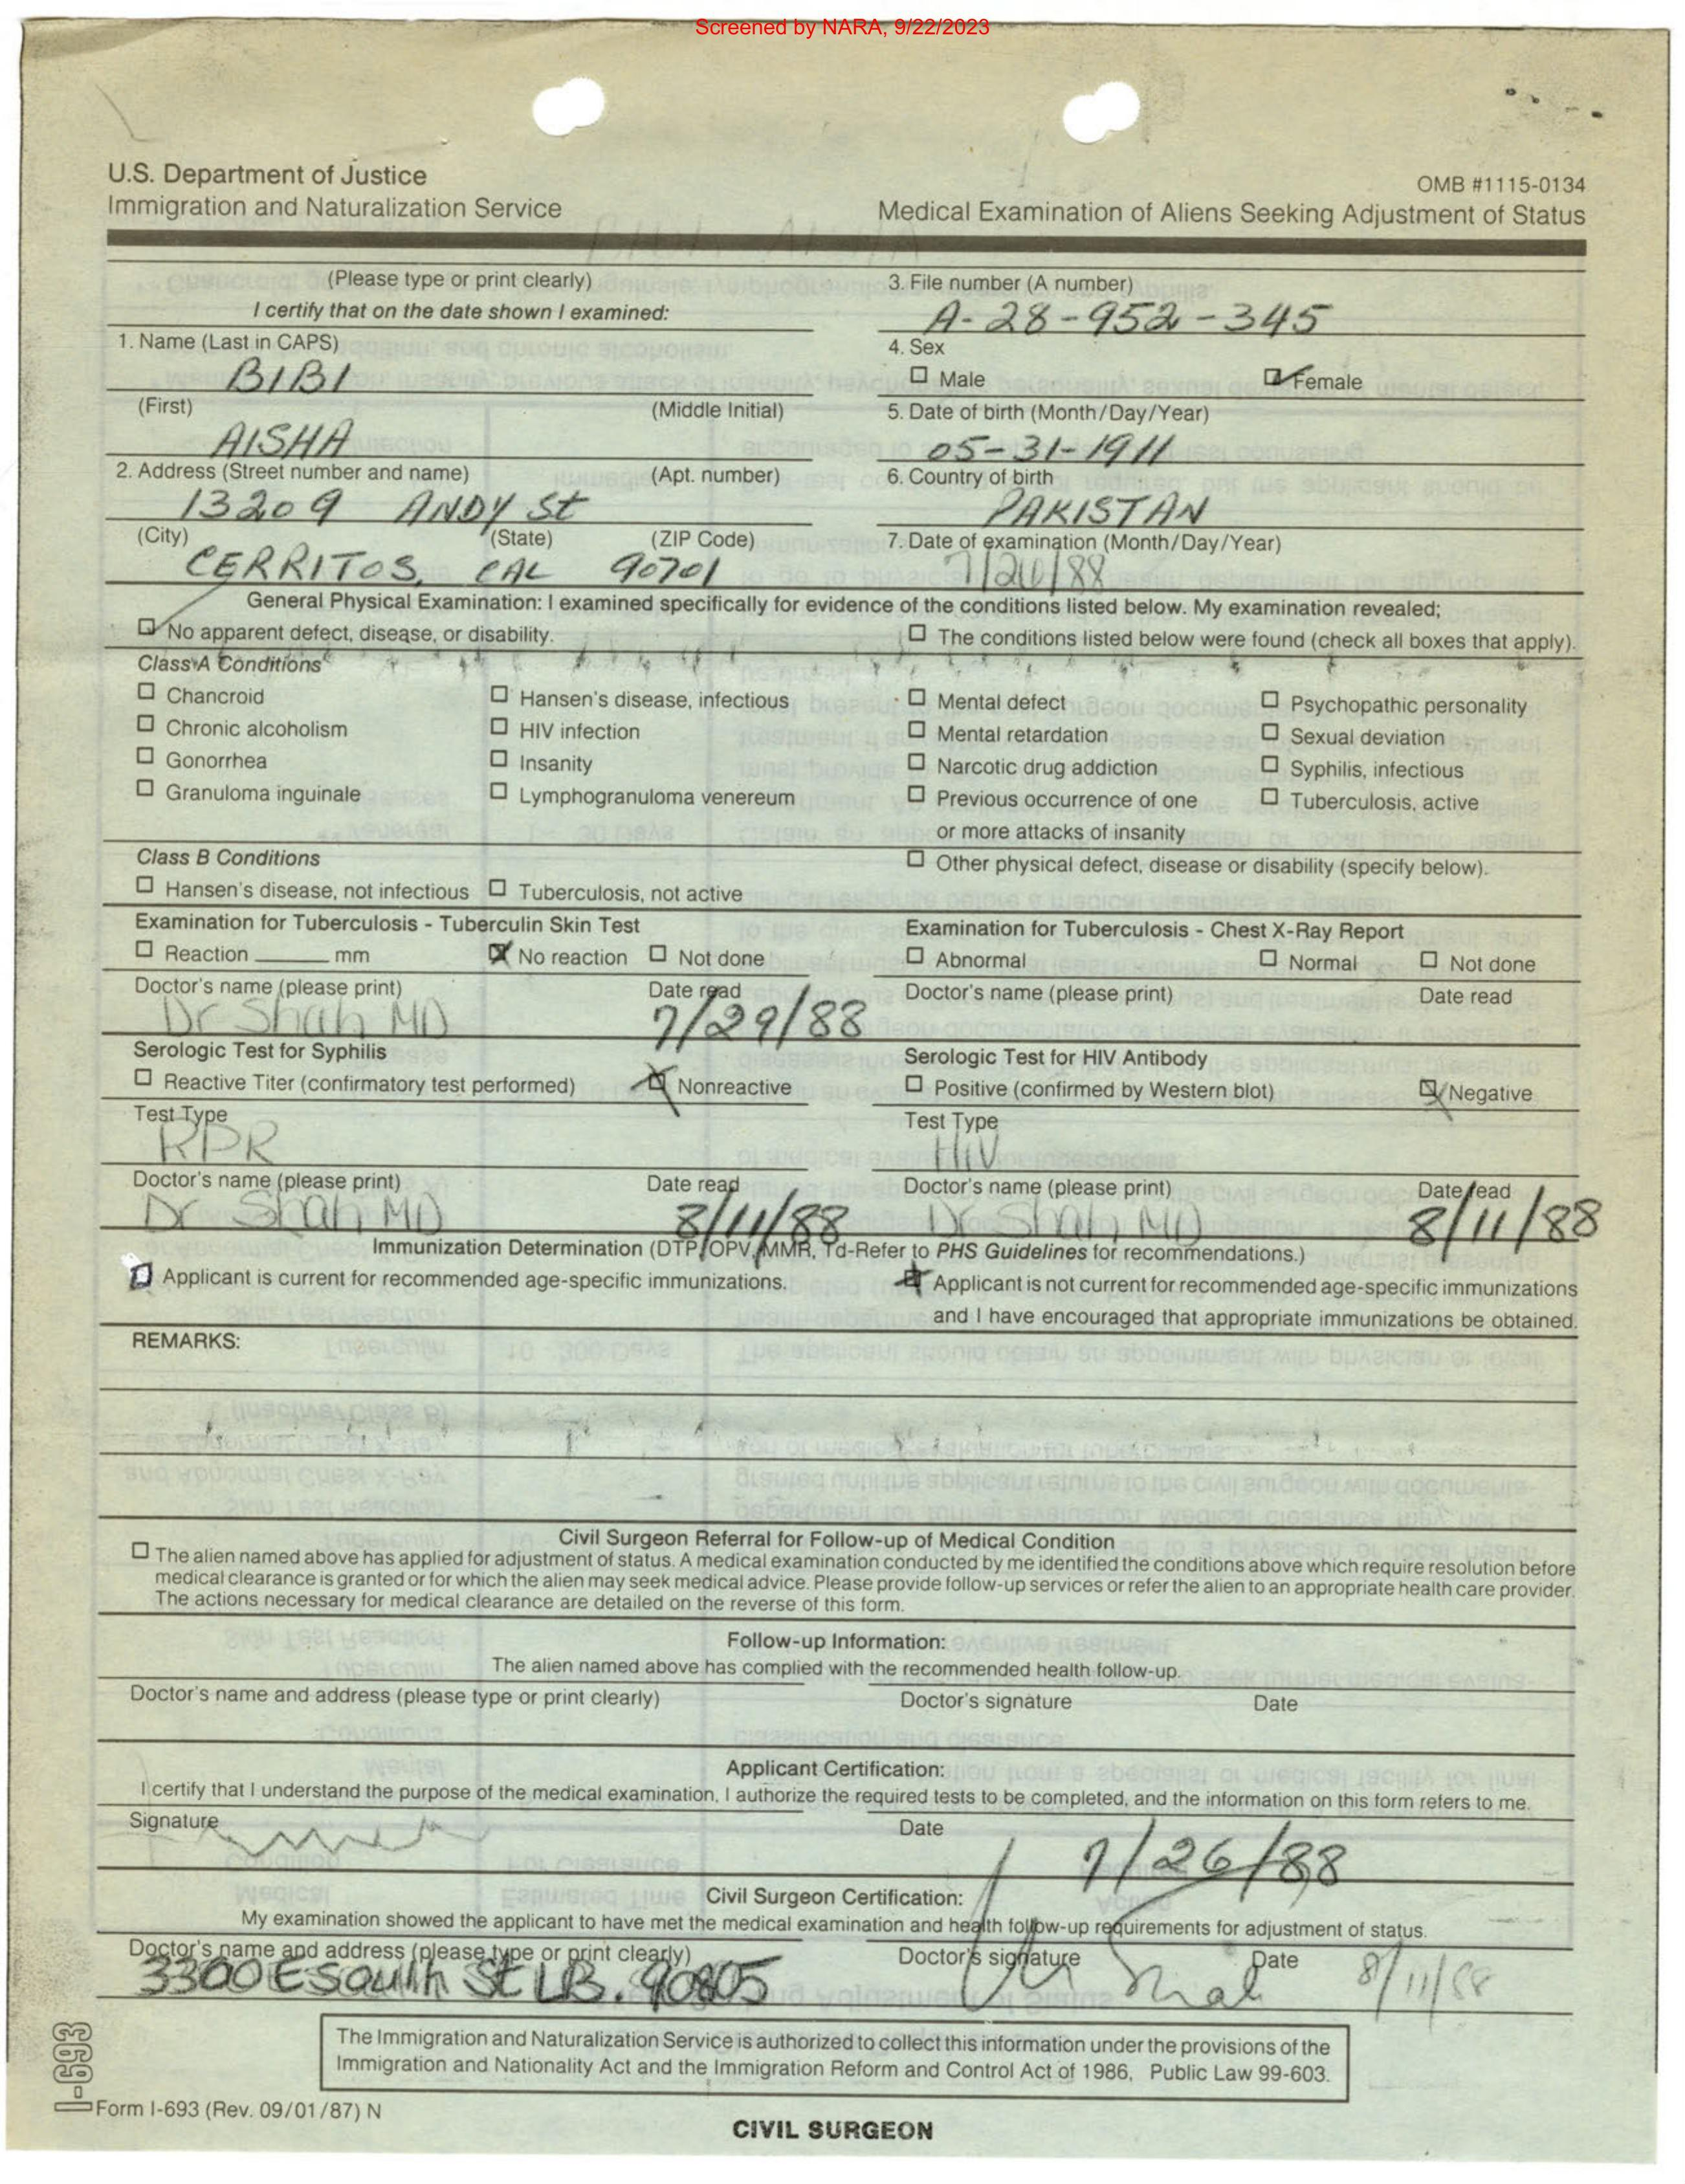 Screened by NARA, 9/22/2023
U.S. Department of Justice
Immigration and Naturalization Service
OMB #1115-0134
Medical Examination of Aliens Seeking Adjustment of Status
(Please type or print clearly)
I certify that on the date shown I examined:
3. File number (A number)
A-28-952-345
1. Name (Last in CAPS)
BIBI
4. Sex
Male Female
(First) (Middle Initial)
AISHA
5. Date of birth (Month/Day/Year)
05-31-1911
2. Address (Street number and name) (Apt. number)
13209 ANDY St
6. Country of birth
PAKISTAN
(City) (State) (ZIP Code)
CERRITOS, CAL 90701
7. Date of examination (Month/Day/Year)
7/26/88
General Physical Examination: I examined specifically for evidence of the conditions listed below. My examination revealed;
No apparent defect, disease, or disability.
The conditions listed below were found (check all boxes that apply).
Class A Conditions
Chancroid Hansen's disease, infectious Mental defect Psychopathic personality
Chronic alcoholism HIV infection Mental retardation Sexual deviation
Gonorrhea Insanity Narcotic drug addiction Syphilis, infectious
Granuloma inguinale Lymphogranuloma venereum Previous occurrence of one Tuberculosis, active
or more attacks of insanity
Class B Conditions
Other physical defect, disease or disability (specify below).
Hansen's disease, not infectious Tuberculosis, not active
Examination for Tuberculosis - Tuberculin Skin Test
Examination for Tuberculosis - Chest X-Ray Report
Reaction ______ mm No reaction Not done
Abnormal Normal Not done
Doctor's name (please print) Date read
Dr Shah MD 7/29/88
Doctor's name (please print) Date read
Serologic Test for Syphilis
Serologic Test for HIV Antibody
Reactive Titer (confirmatory test performed) Nonreactive
Positive (confirmed by Western blot) Negative
Test Type
RPR
Test Type
HIV
Doctor's name (please print) Date read
Dr Shah MD 8/11/88
Doctor's name (please print) Date read
Dr Shah MD 8/11/88
Immunization Determination (DTP, OPV, MMR, Td-Refer to PHS Guidelines for recommendations.)
Applicant is current for recommended age-specific immunizations.
Applicant is not current for recommended age-specific immunizations
and I have encouraged that appropriate immunizations be obtained.
REMARKS:
Civil Surgeon Referral for Follow-up of Medical Condition
The alien named above has applied for adjustment of status. A medical examination conducted by me identified the conditions above which require resolution before
medical clearance is granted or for which the alien may seek medical advice. Please provide follow-up services or refer the alien to an appropriate health care provider.
The actions necessary for medical clearance are detailed on the reverse of this form.
Follow-up Information:
The alien named above has complied with the recommended health follow-up.
Doctor's name and address (please type or print clearly) Doctor's signature Date
Applicant Certification:
I certify that I understand the purpose of the medical examination, I authorize the required tests to be completed, and the information on this form refers to me.
Signature Date
7/26/88
Civil Surgeon Certification:
My examination showed the applicant to have met the medical examination and health follow-up requirements for adjustment of status.
Doctor's name and address (please type or print clearly) Doctor's signature Date
3300 E South St L.B. 90805 Shah 8/11/88
The Immigration and Naturalization Service is authorized to collect this information under the provisions of the
Immigration and Nationality Act and the Immigration Reform and Control Act of 1986, Public Law 99-603.
I-693
Form I-693 (Rev. 09/01/87) N
CIVIL SURGEON